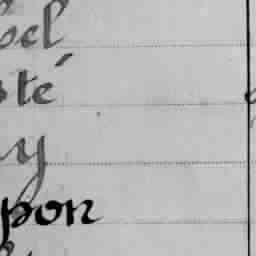 oel
sté
y
pon